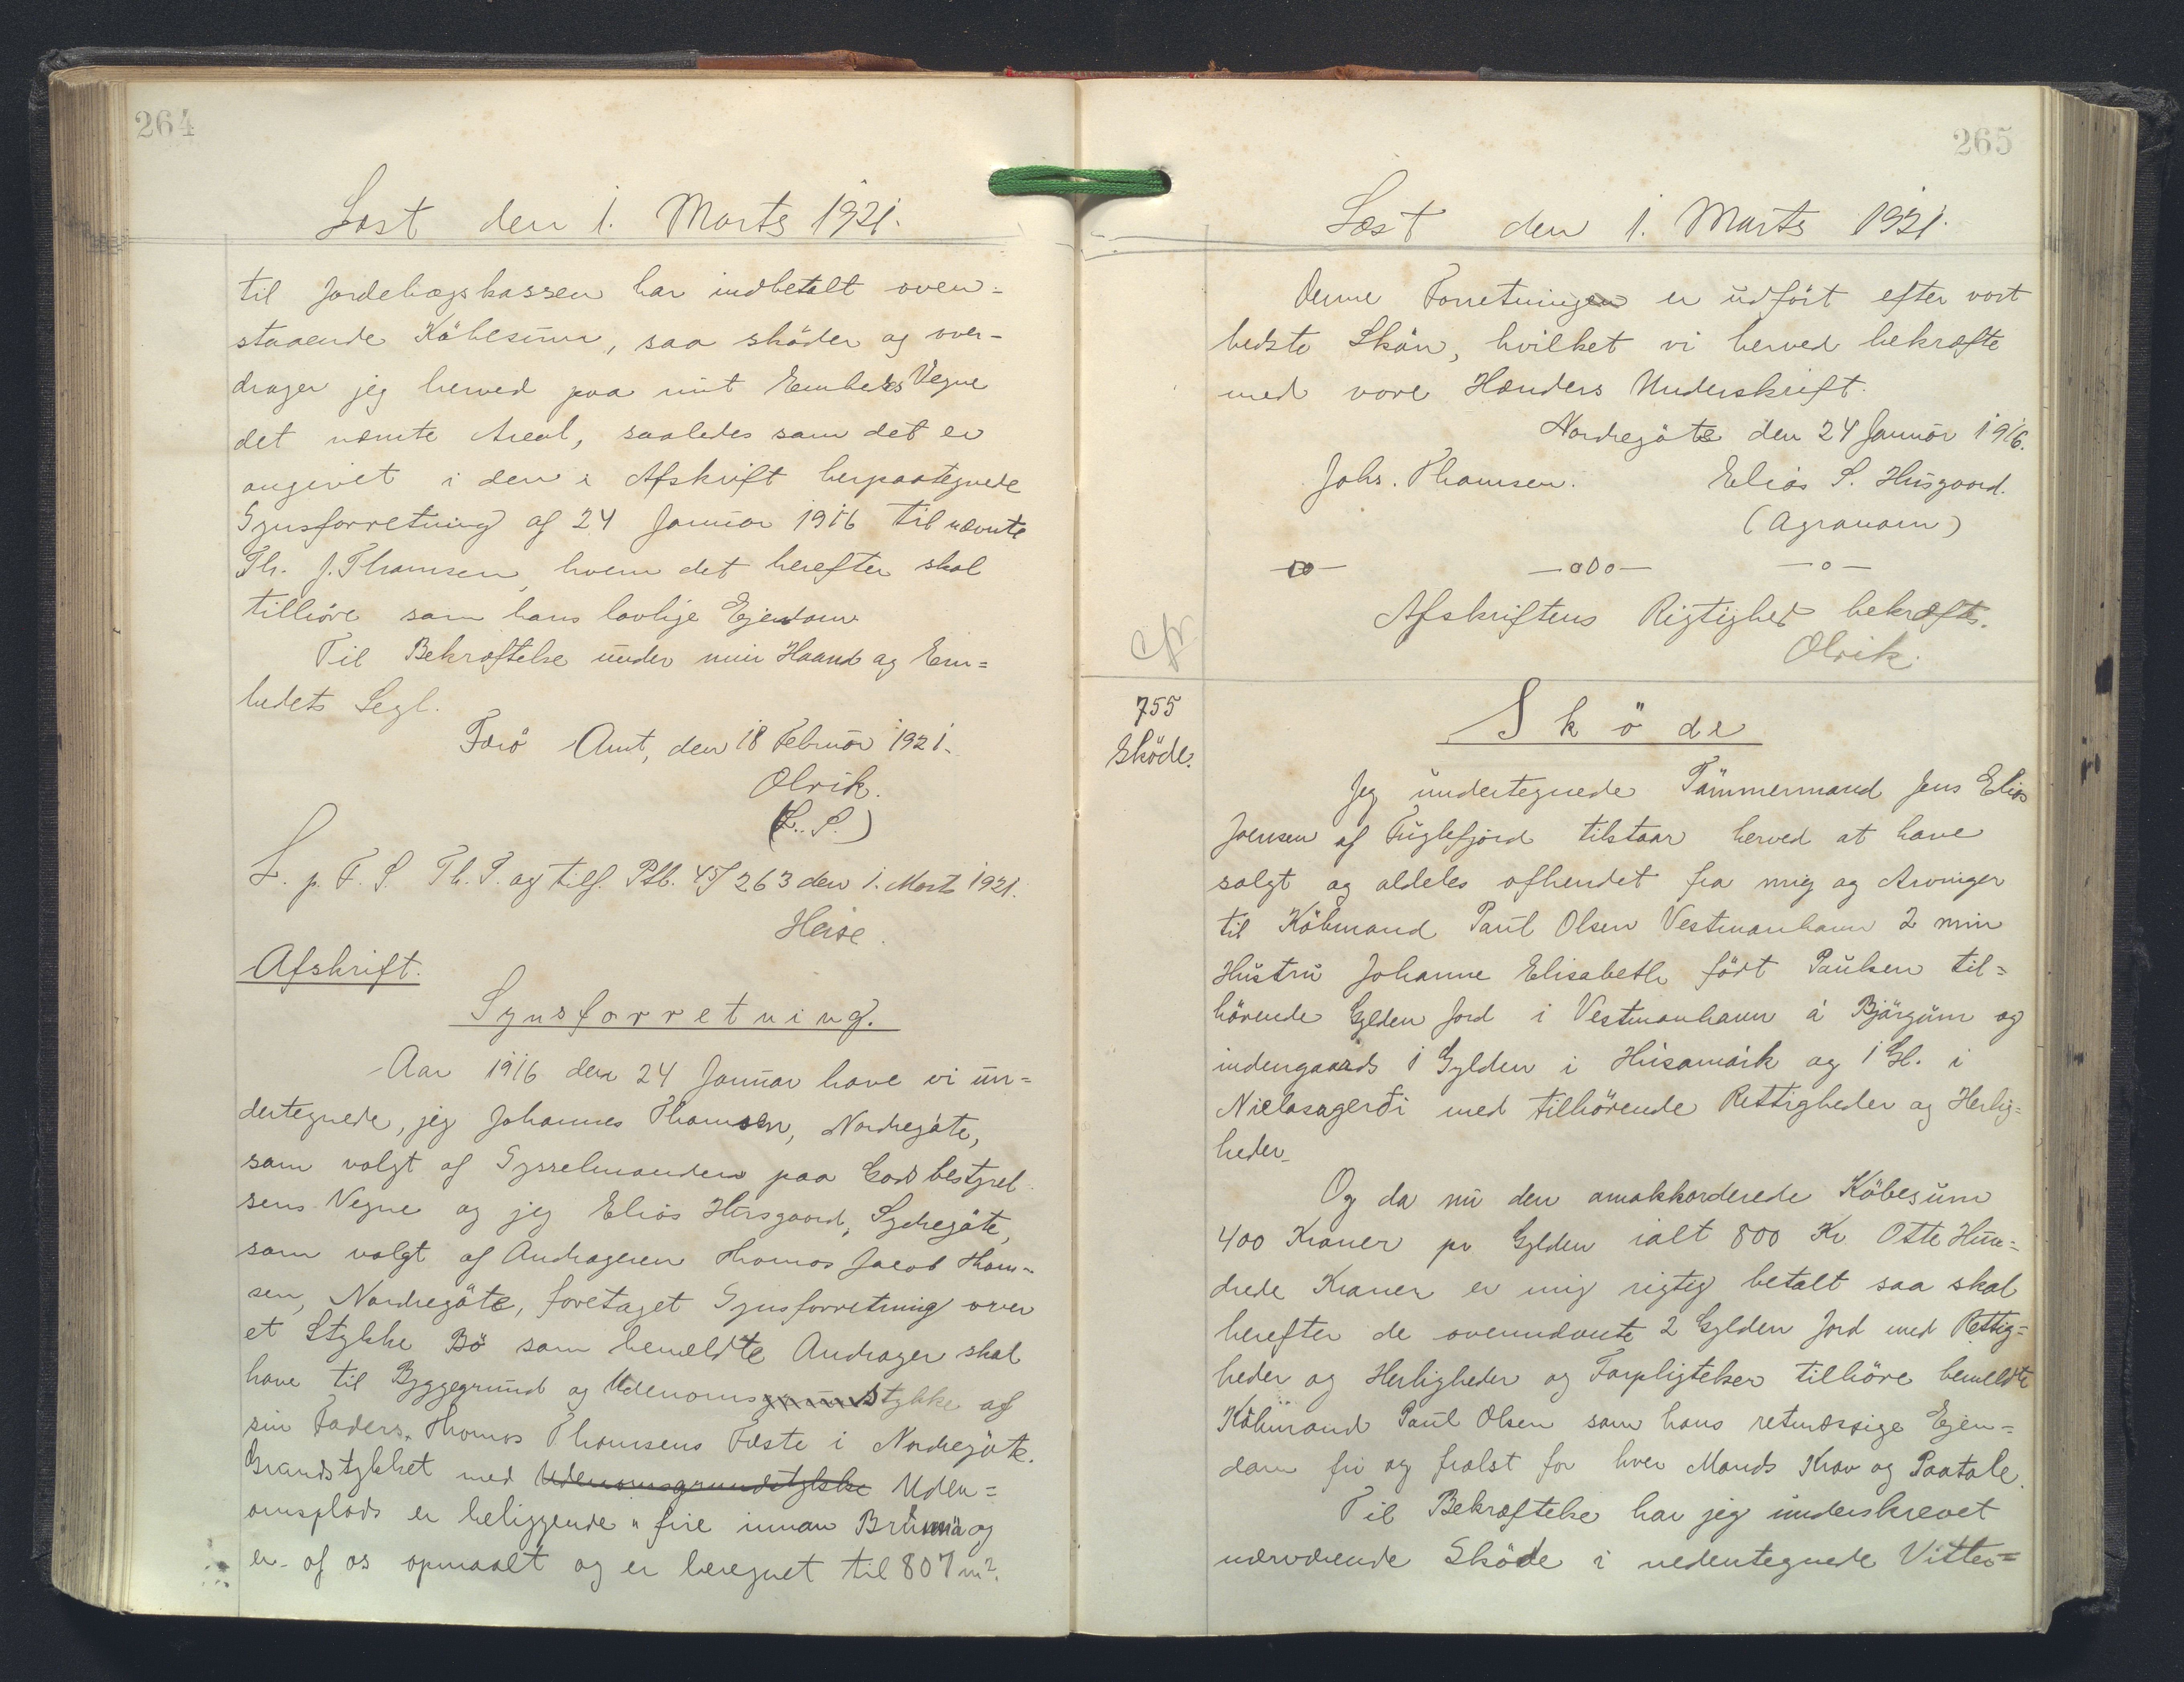 264
Læst den 1. Marts 1921.
til Jordebogskassen har indbetalt oven=
staaende Köbesum, saa sköder og over-
drager jeg herved paa mit Embeds Vegne
det nævnte Areal, saaledes som det er
angivet i den i Afskrift herpaategnede
Synsforretning af 24 Januar 1916 til nævnte
Th. J. Thomsen, hvem det herefter skal
tilhöre som hans lovlige Ejendom
Til Bekræftelse under min Haand og Em=
bedets Segl.
Færö Amt, den 18 Februar 1921.
Olrik.
(L. S.)
L. p. F. S. Th. P. og tilf. Ptb. 45/263 den 1. Marts 1921.
Heise.
Afskrift.
Synsforretning.
Aar 1916 den 24 Januar have vi un=
dertegnede, jeg Johannes Thomsen, Nordregöte,
som valgt af Sysselmanden paa Godsbestyrel
sens Vegne og jeg Elias Husgaard, Sydregöte,
som valgt af Andrageren Thomas Jacob Thom=
sen, Nordregöte, foretaget Synsforretning over
et Stykke Bö som bemeldte Andrager skal
have til Byggegrund og Udenomsstykke af
sin Faders, Thomas Thomsens Fæste i Nordregöte.
Grundstykket med Udenomsgrundstykke Uden=
omsplads er beliggende " fire innan Brunná og
er af os opmaalt og er beregnet til 807 m².
265
Læst den 1. Marts 1921.
Denne Forretningen er udfört efter vort
bedste Skön, hvilket vi herved bekræfte
med vore Hænders Underskrift.
Nordregöte den 24 Januar 1916.
Johs. Thomsen. Elias S. Husgaard.
(Agronom)
—o— —oOo— —o—
Afskriftens Rigtighed bekræftes.
Olrik.
cfr
755
Sköde.
Sköde
Jeg undertegnede Tömmermand Jens Elias
Joensen af Fuglefjord tilstaar herved at have
solgt og aldeles afhendet fra mig og Arvinger
til Köbmand Paul Olsen Vestmanhavn 2 min
Hustru Johanne Elisabeth födt Paulsen til=
hörende Gylden Jord i Vestmanhavn á Bjørgum og
indengaards 1 Gylden i Húsamørk og 1 Gl. i
Nielasagerði med tilhörende Rettigheder og Herlig=
heder.
Og da nu den omakkorderede Köbesum
400 Kroner pr Gylden ialt 800 Kr Otte Hun=
drede Kroner er mig rigtig betalt saa skal
herefter de ovennævnte 2 Gylden Jord med Rettig=
heder og Herligheder og Forpligtelser tilhöre bemeldte
Köbmand Paul Olsen som hans retmæssige Ejen=
dom fri og frelst for hver Mands Krav og Paatale.
Til Bekræftelse har jeg underskrevet
nærværende Sköde i nedentegnede Vitter=